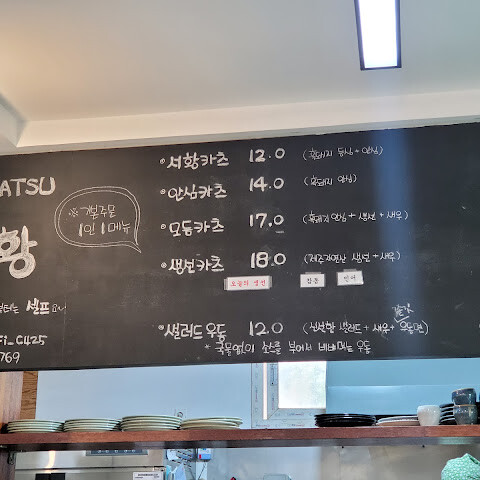 ATSU
황
※ 기본주문
1인 1메뉴
셀프
Fi_C425
769
서황카츠 12.0 (흑돼지 등심 + 안심)
안심카츠 14.0 (흑돼지 안심)
모둠카츠 17.0 (흑돼지 안심 + 생선 + 새우)
생선카츠 18.0 (제주자연산 생선 + 새우)
오늘의 생선
샐러드우동 12.0 (신선한 샐러드 + 새우 + 우동면)
* 국물없이 소스를 부어서 비벼먹는 우동